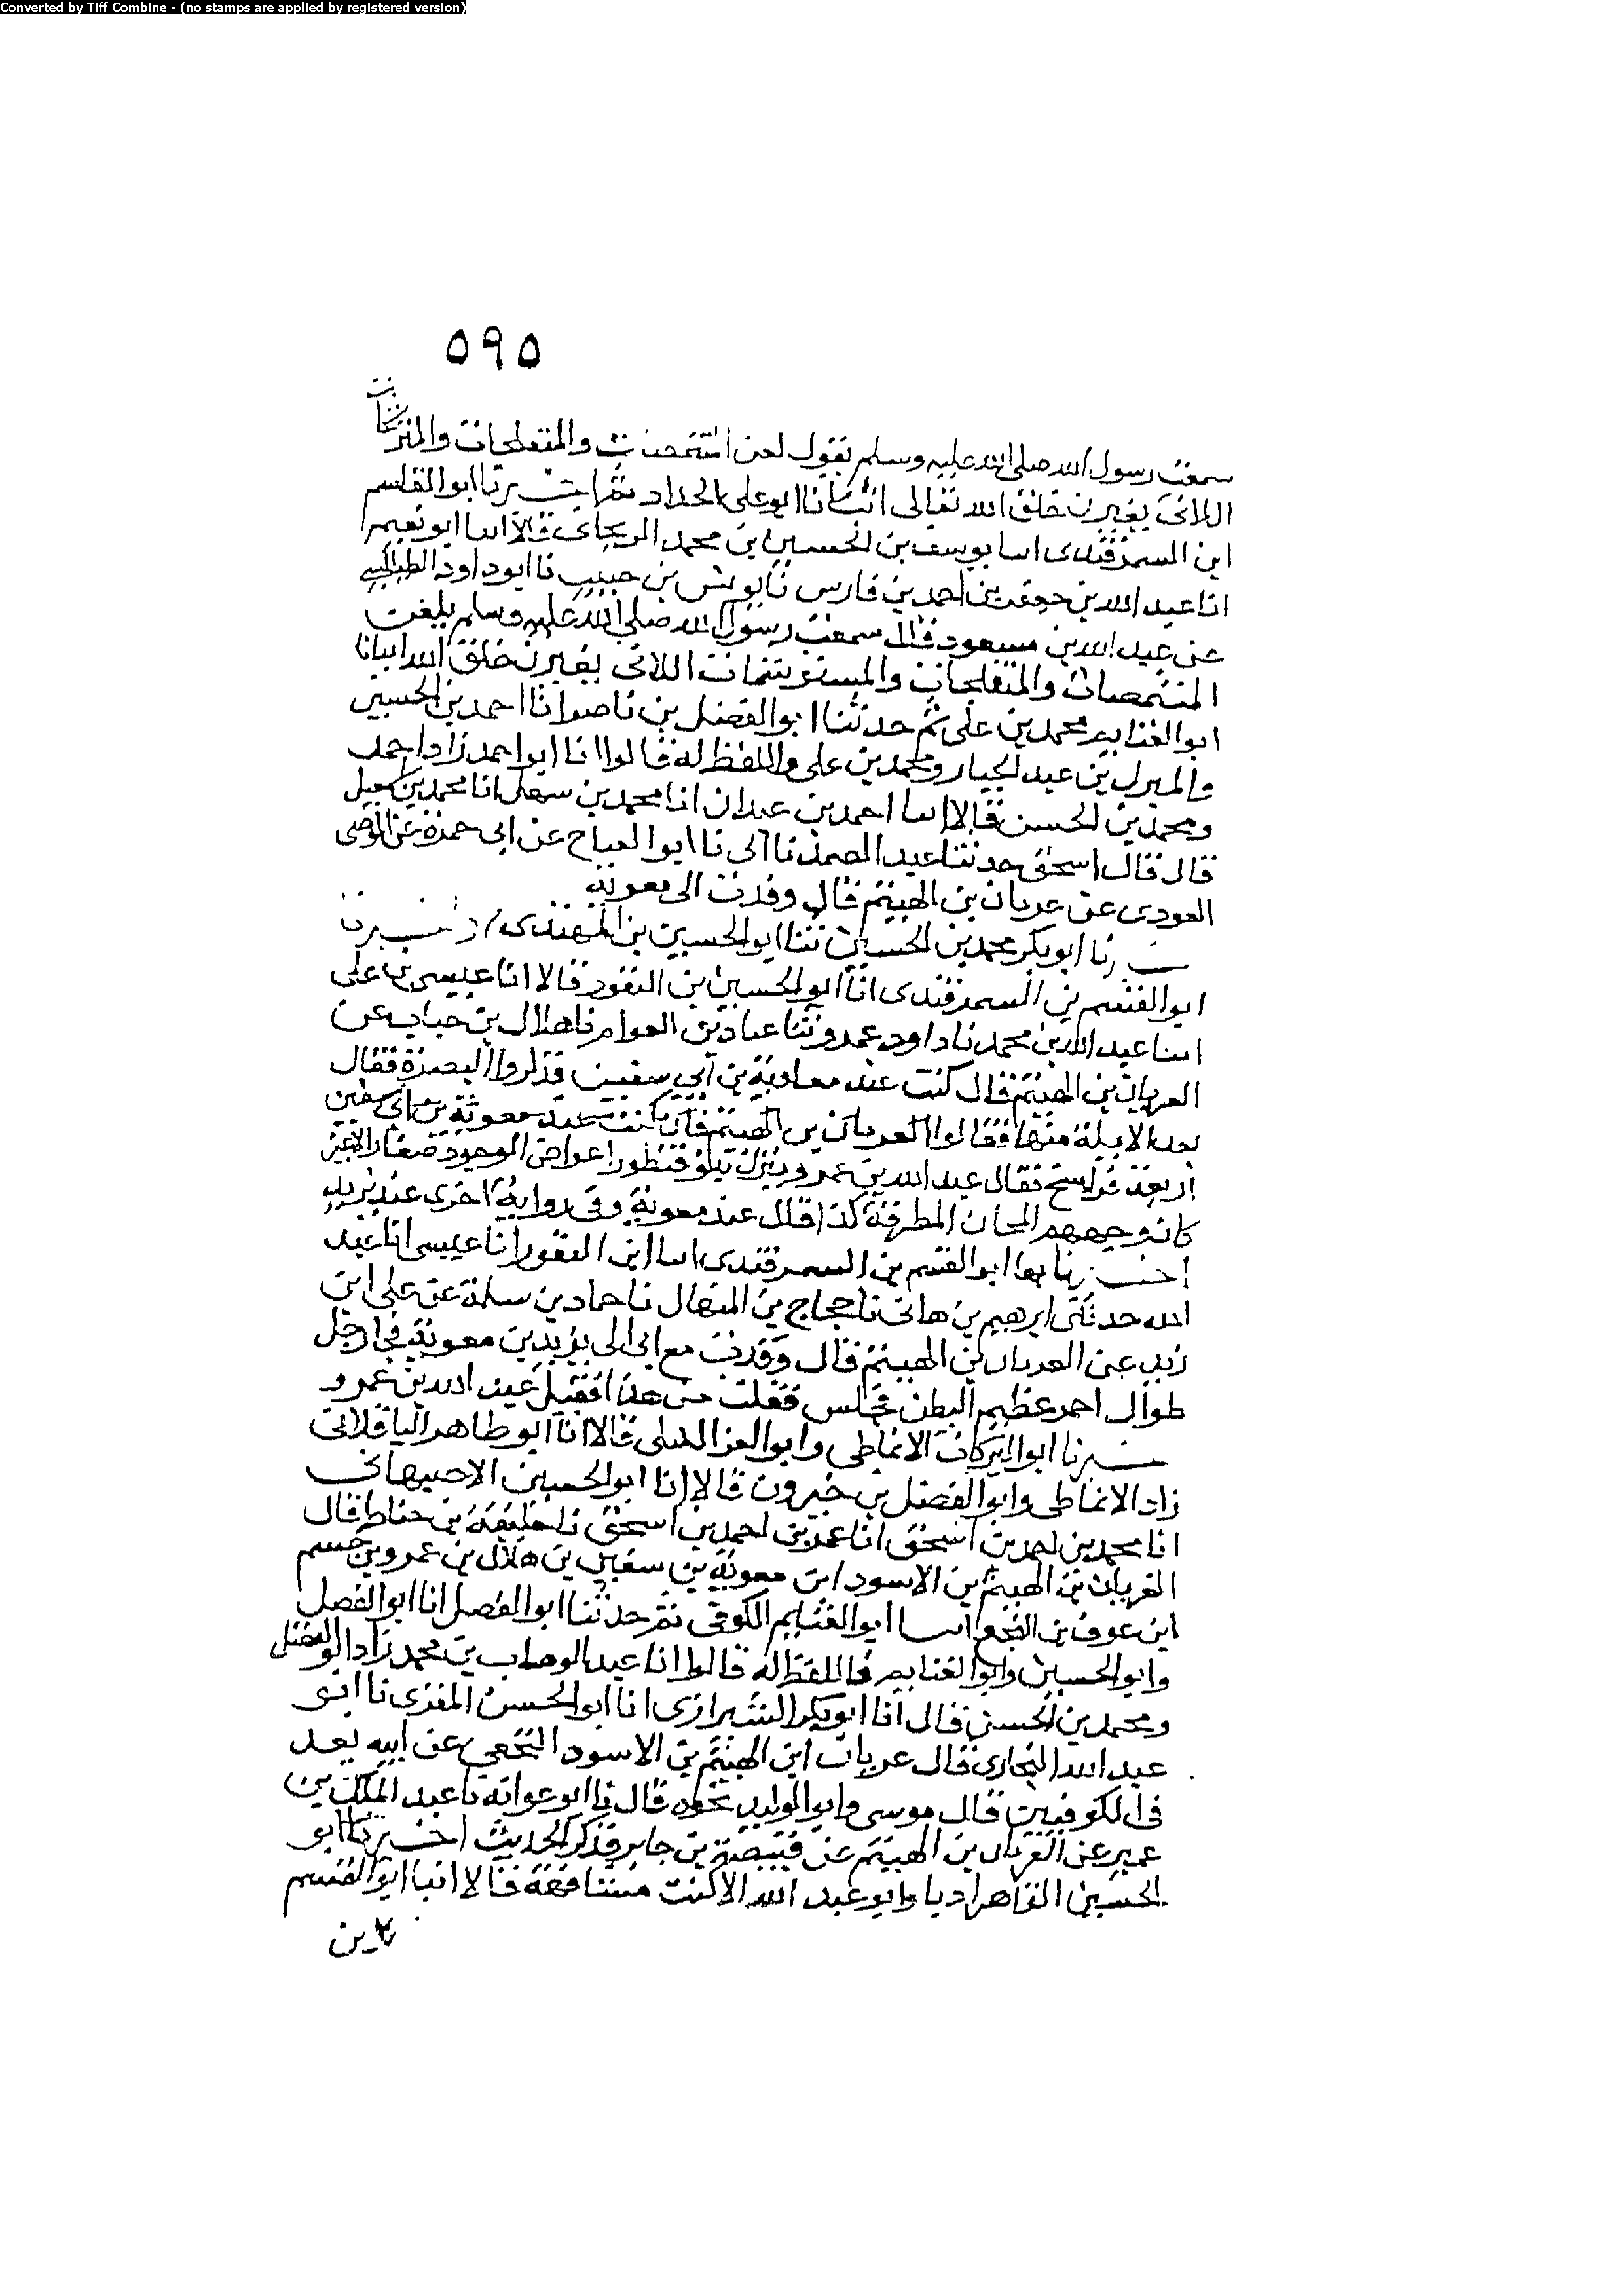 Converted by Tiff Combine - (no stamps are applied by registered version)
٥٩٥
سمعت رسول الله صلى الله عليه وسلم يقول لعن المتنمصات والمتفلجات
اللائى يغيرن خلق الله تعالى انبانا ابو على الحداد ثم اخبرنا ابو القاسم
ابن السمرقندى انا يوسف بن الحسين بن محمد قالا انا ابو نعيم
انا عبد الله بن جعفر بن احمد بن فارس نا يونس بن حبيب نا ابو داود الطيالسى
عن عبد الله بن مسعود قال سمعت رسول الله صلى الله عليه وسلم يلعن
المتنمصات والمتفلجات والمستوشمات اللائى يغيرن خلق الله انبانا
ابو الغنايم محمد بن على ثم حدثنا ابو الفضل بن ناصر انا احمد بن الحسين
والمبرك بن عبد الجبار ومحمد بن على واللفظ له قالوا انا ابو احمد زاد احمد
ومحمد بن الحسن قالا انا احمد بن عبدان انا محمد بن سهل انا محمد بن
قال قال اسحق حدثنا عبد الصمد نا ابى نا ابو العباح عن ابى حمزة عن
العودى عن عريان بن الهيثم قال وفدت الى معوية
رنا ابو بكر محمد بن الحسين ثنا ابو الحسين بن المهتدى
ابو القسم بن السمرقندى انا ابو الحسين بن النقور قالا انا عيسى بن على
انا عبد الله بن محمد نا داود عمرو ثنا عباد بن العوام نا هلال بن خباب عن
العريان بن الهيثم قال كنت عند معاوية بن ابى سفين فذكروا البصرة فقال
بعد الابلة منها فقالوا العريان بن الهيثم فان كنت عند معوية بن ابى سفين
اربعة فراسخ فقال عبد الله بن عمرو صغار الاعين
كان وجوههم المجان المطرقة كذا قال عند معوية وفى رواية اخرى عند يزيد
اخبرنا بها ابو القسم بن السمرقندى انا ابن النقور انا عيسى انا عبد
الله حدثنى ابرهيم بن هانى نا حجاج بن المنهال نا حماد بن سلمة عن على ابن
زيد عن العريان بن الهيثم قال وفدت مع ابى الى يزيد بن معوية فجا رجل
طوال احمر عظيم البطن فجلس فقلت من هذا فقيل عبد الله بن عمرو
خبرنا ابو البركات الانماطى وابو العز قالا انا ابو طاهر الباقلانى
زاد الانماطى وابو الفضل بن خيرون قالا انا ابو الحسين الاصبهانى
انا محمد بن احمد بن اسحق انا عمر بن احمد بن اسحق نا خليفة بن خياط قال
العريان بن الهيثم بن الاسود ابن معوية بن سفين بن هلال بن عمرو بن جسم
ابن عوف بن النخع انبا ابو الغنايم الكوفى ثم حدثنا ابو الفضل انا ابو الفضل
وابو الحسين وابو الغنايم واللفظ له قالوا انا عبد الوهاب بن محمد زاد ابو الفضل
ومحمد بن الحسن قال انا ابو بكر الشيرازى انا ابو الحسن المقرى نا ابو
عبد الله البخارى قال عريان ابن الهيثم بن الاسود النخعى عن ابيه يعد
فى الكوفيين قال موسى وابو الوليد نا ابو عوانة نا عبد الملك بن
عمير عن العريان بن الهيثم عن قبيصة بن جابر فذكر الحديث اخبرنا ابو
الحسين وابو عبد الله قالا انبا ابو القسم
بن